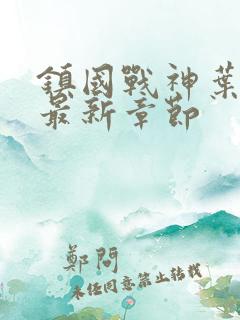 鎮國戰神葉
最新章節
鄭問
未經同意禁止轉載